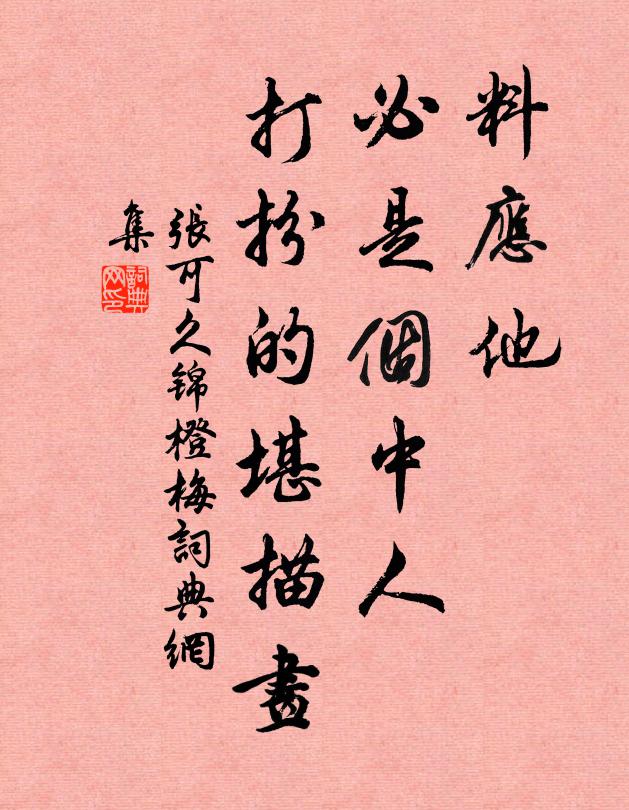 料應他
必是個中人
打扮的堪描畫
張可久锦橙梅詞典網
集
詞典
网印